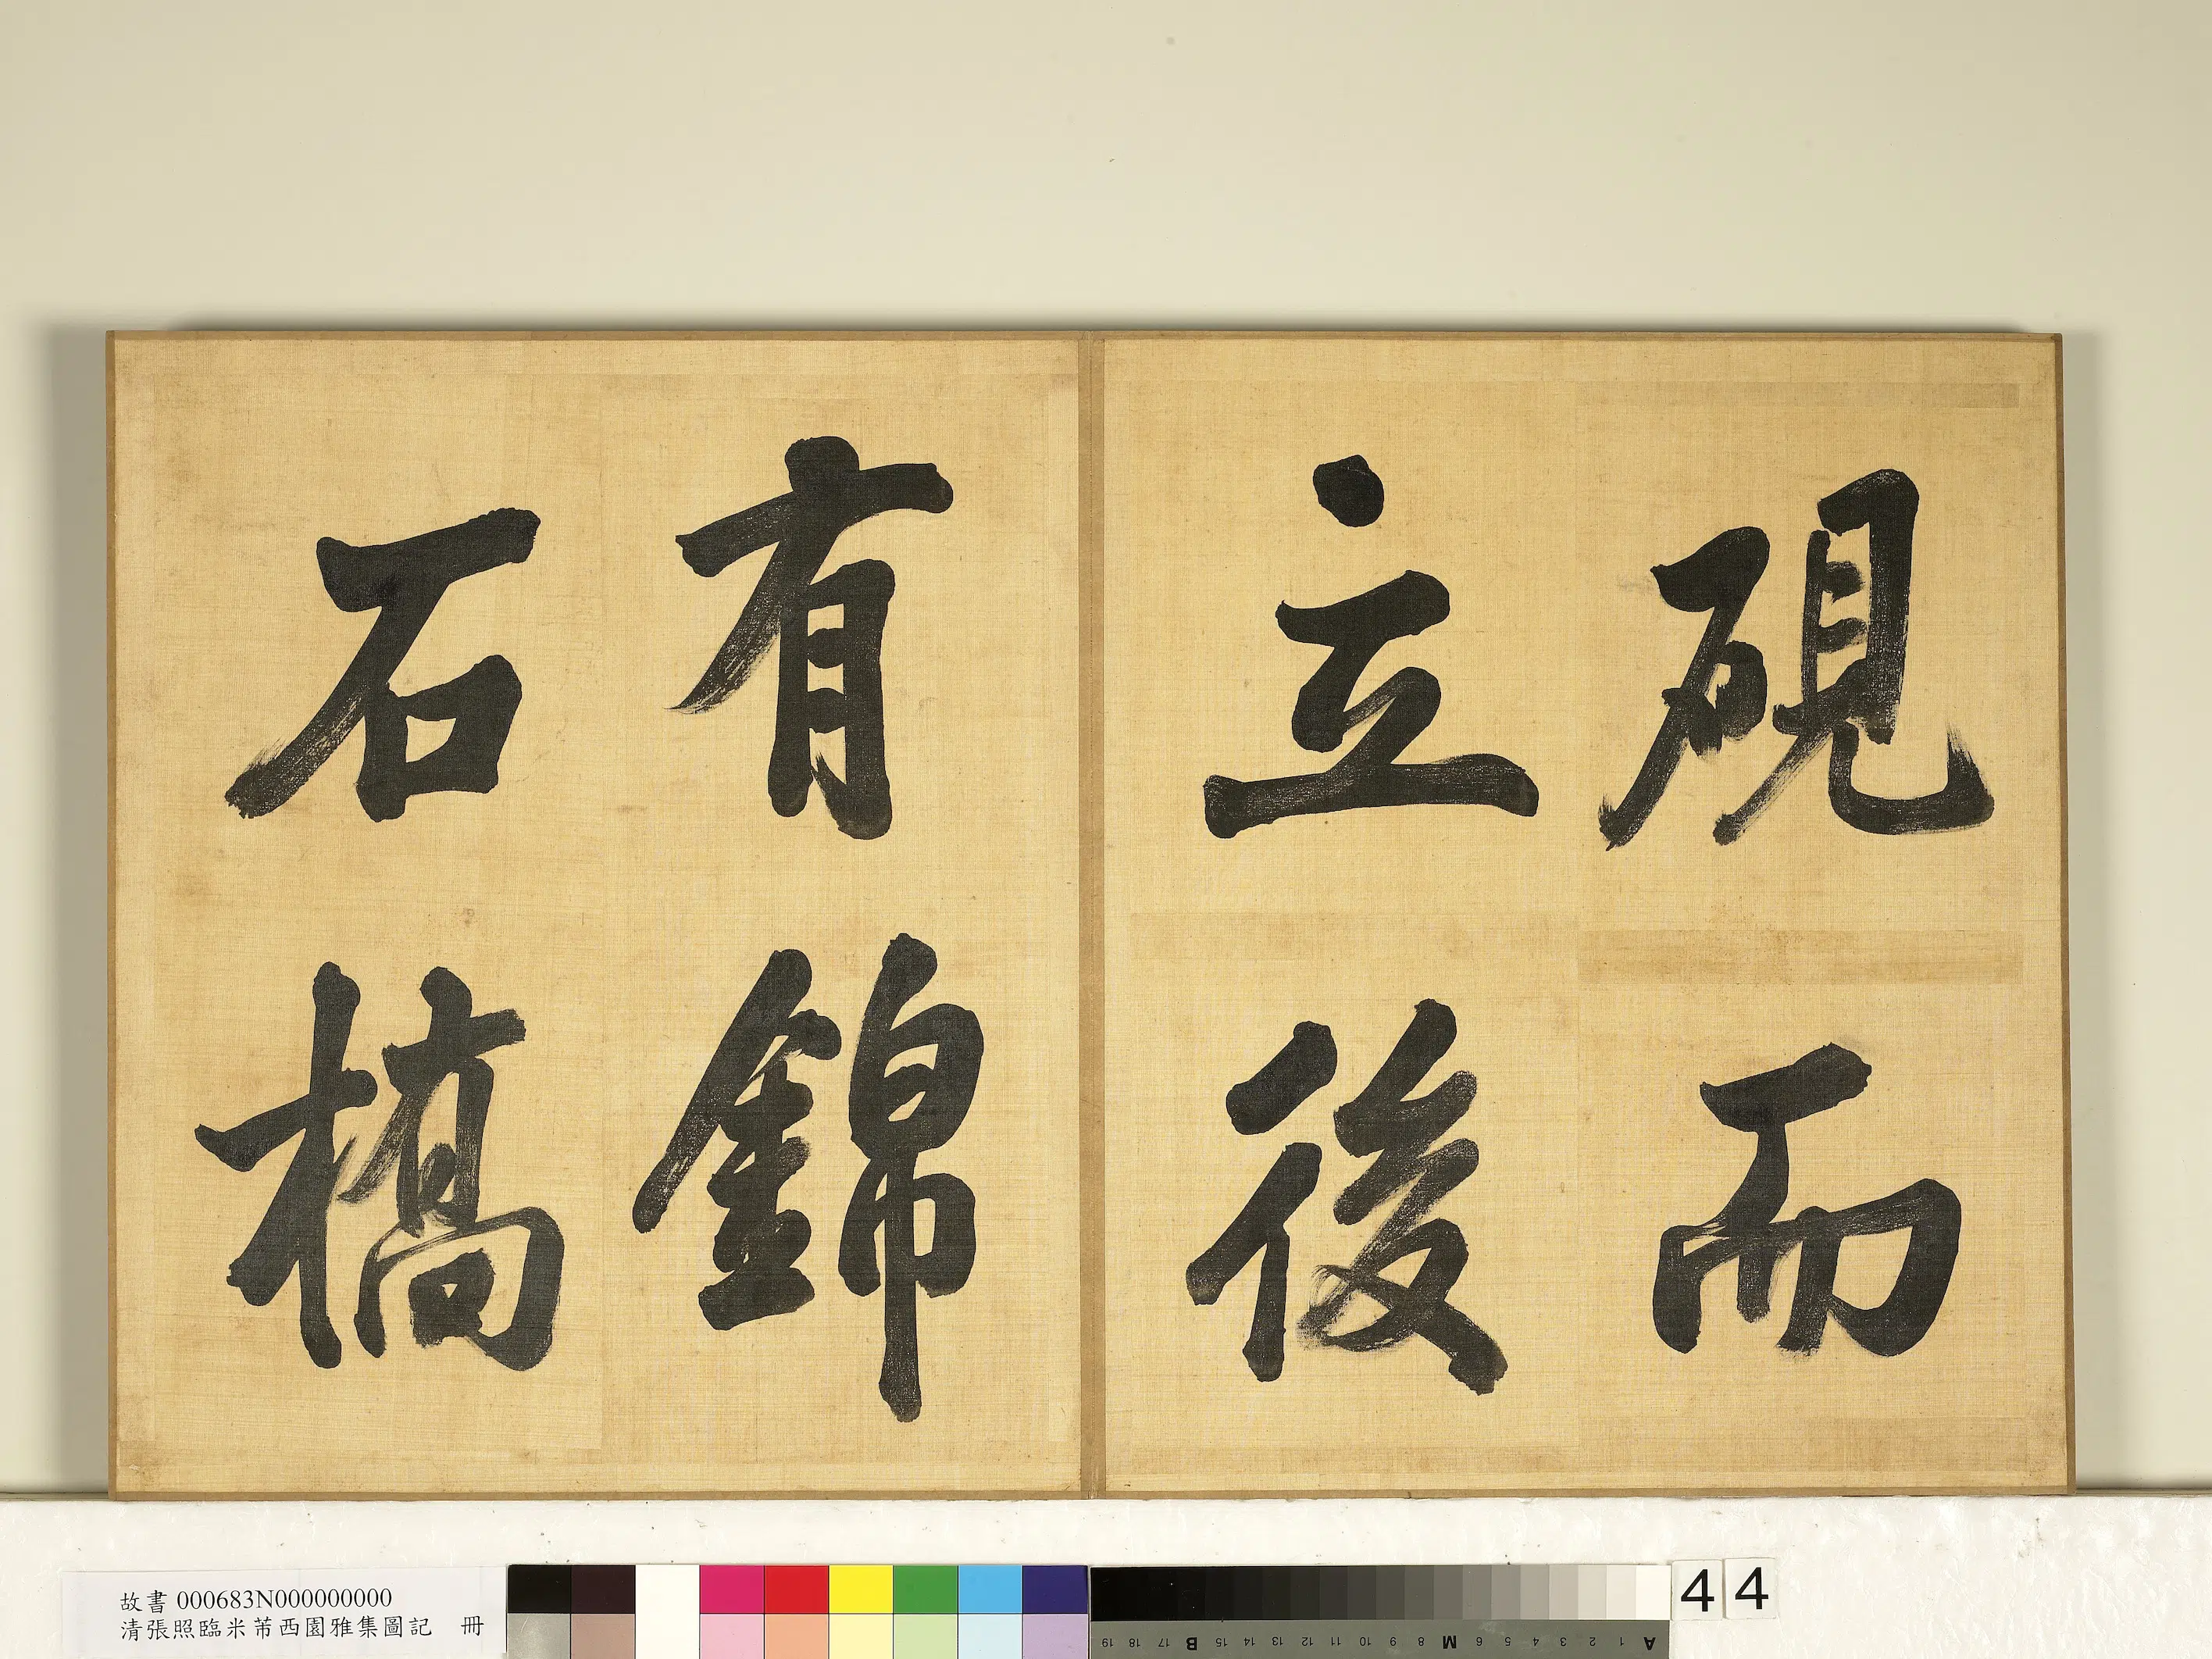 硯而
立後
有錦
石橋
故書 000683N000000000
清張照臨米芾西園雅集圖記 冊
44
19 18 17 B 15 14 13 12 11 10 9 8 M 6 5 4 3 2 1 A